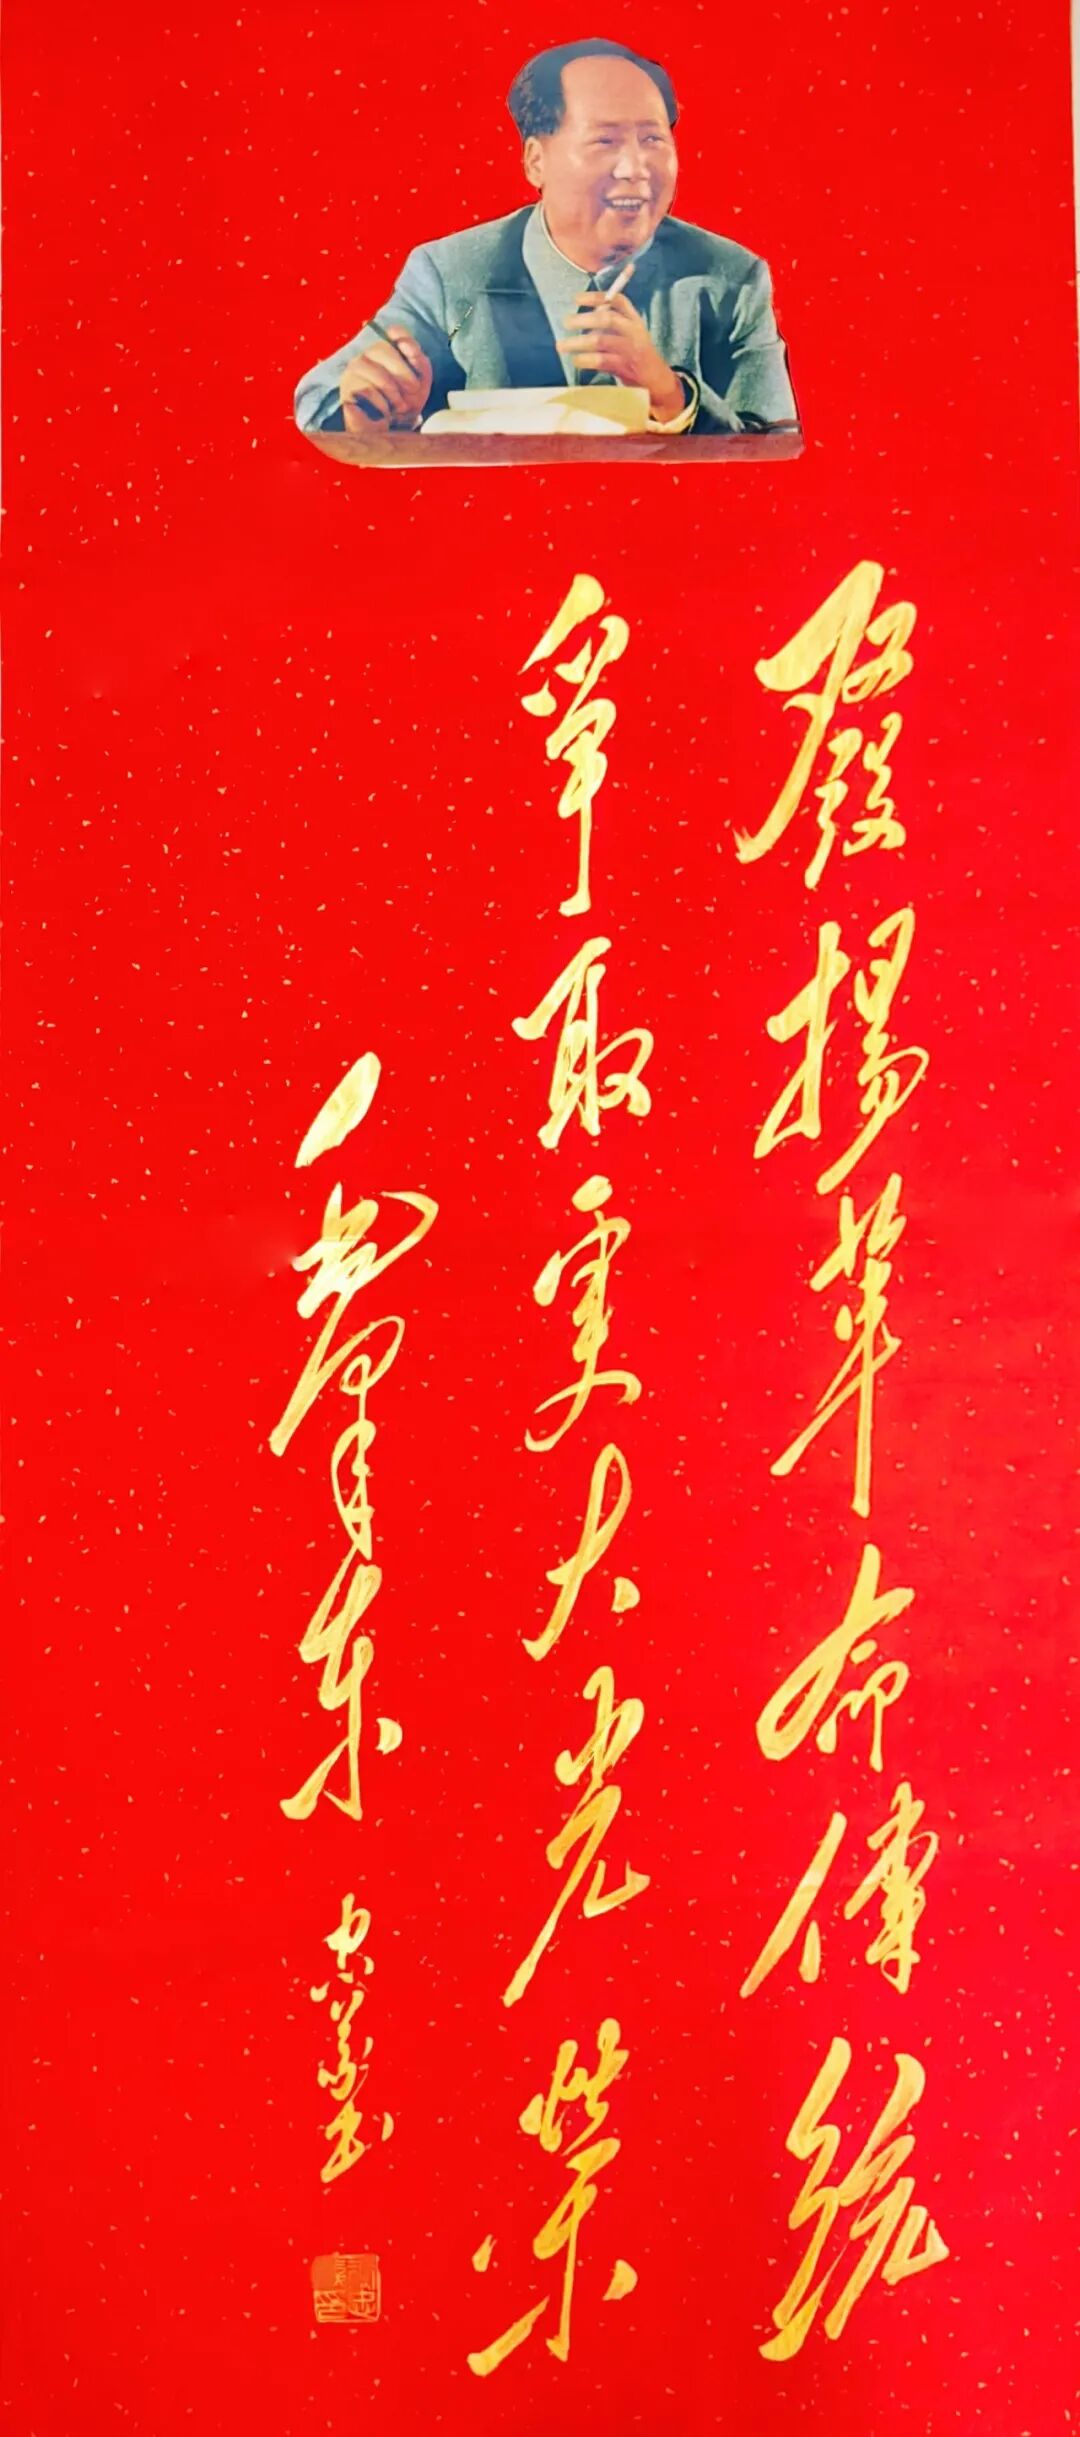 發揚革命傳統
爭取更大光榮
毛澤東
忠義书